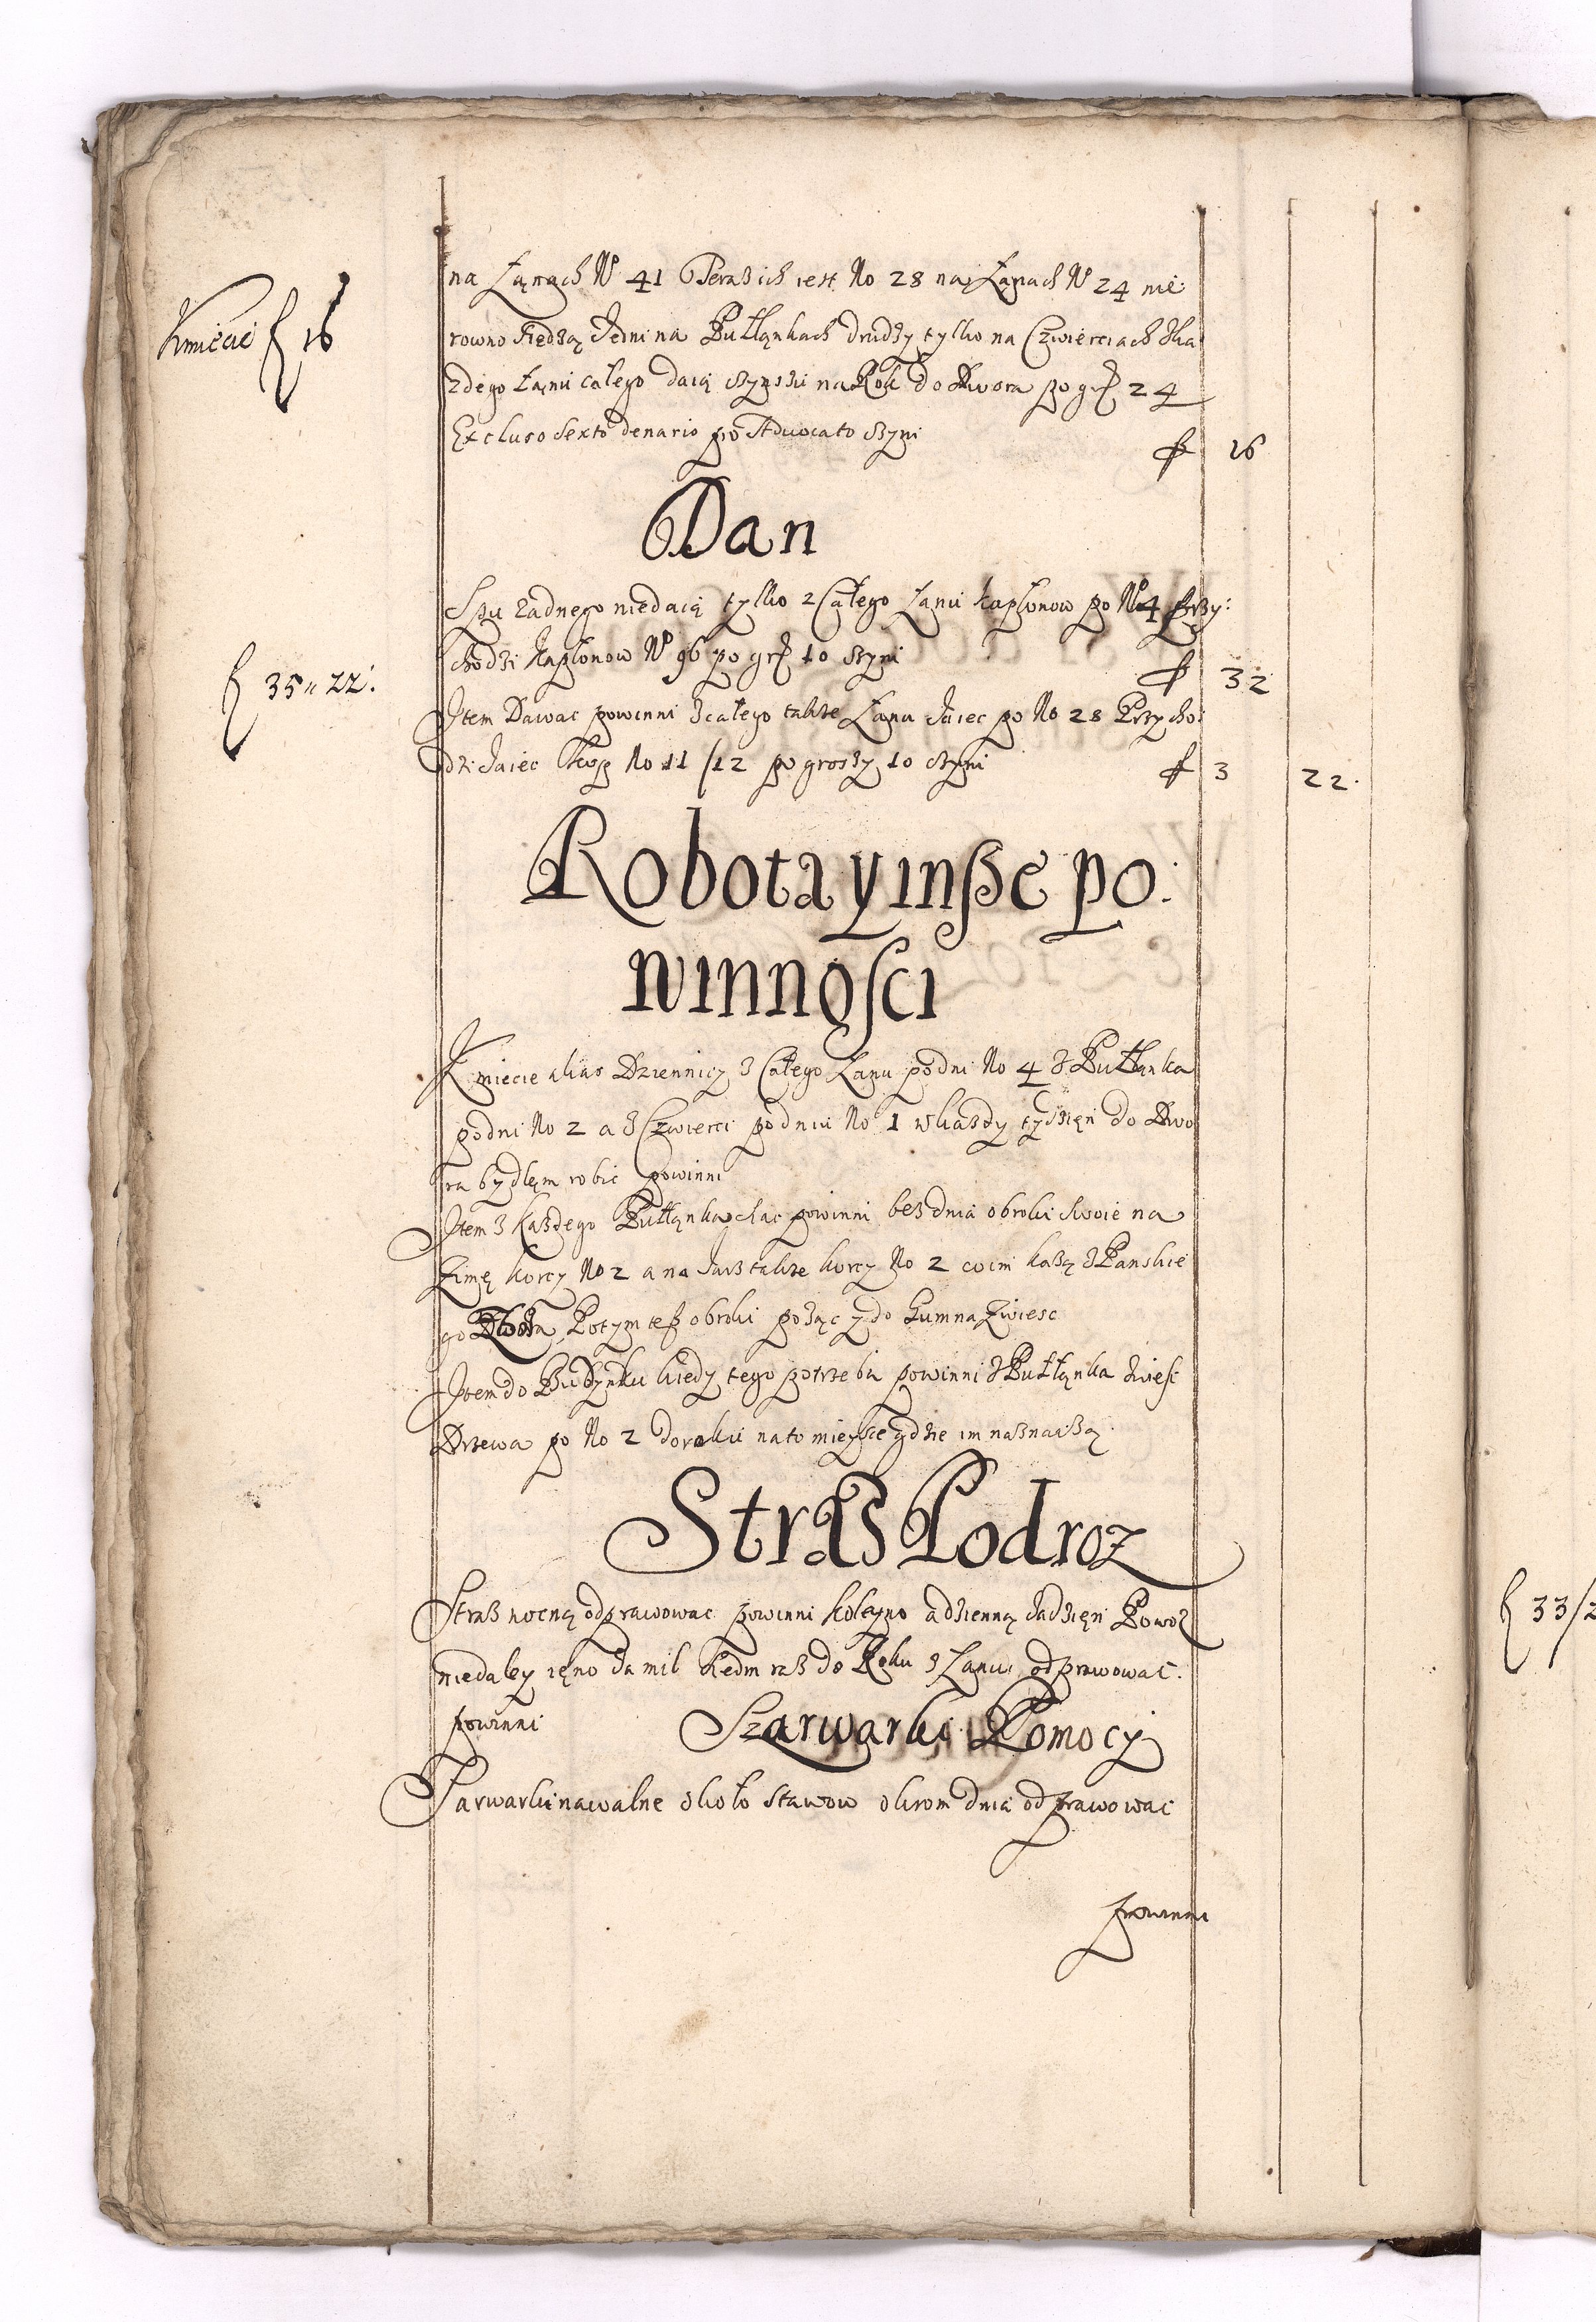 na Łanach No 41 Teraz ich iest No 28 na Łanach No 24 nie
Kmiecie f 16
rowno siedzą Jedni na Pułłankach drudzy tylko na Czwierciach Zka
zdego Łanu całego daią czynszu na Rok do Dwora po gr 24
Excluso Sexto denario pro Advocato czyni f 16
Dan
Sepu żadnego niedaią tylko z Całego Łanu kapłonow po No 4 przy:
chodzi kapłonow No 96 po gr 10 czyni f 32
f 35 " 22.
Item Dawac powinni Zcałego takze Łanu Jaiec po No 28 Przycho:
dzi Jaiec kop No 11/12 po groszy 10 czyni f 3 22.
Robota y inße po:
winnosci
Kmiecie alias Dziennicy z Całego Łanu po dni No 4 z Pułłanka
po dni No 2 a z Czwierci po dniu No 1 wkazdy tydzięń do Dwo
ra bydlęm robic powinni
Item z Każdego Pułłanka siac powinni bez dnia obroki swoie na
Zimę korcy No 2 a na Jarz takze korcy No 2 co im każą z Panskie
go Dwora Potym teß obroki pożąc y do Gumna Zwiesc
Item do Budynku kiedy tego potrzeba powinni z Pułłanka zwiesc
Drzewa po No 2 do roku na to mieysce gdzie im naznaczą
Straß Podroz
Straz nocną odprawowac powinni koleyno a dzienną Zadzięń Powoz
niedaley ięno za mil siedm raz do Roku z Łanu odprawowac.
powinni
Szarwarki Pomocy
Sarwarki nawalne około Stawow okrom dnia odprawowac
powinni
f 33/2